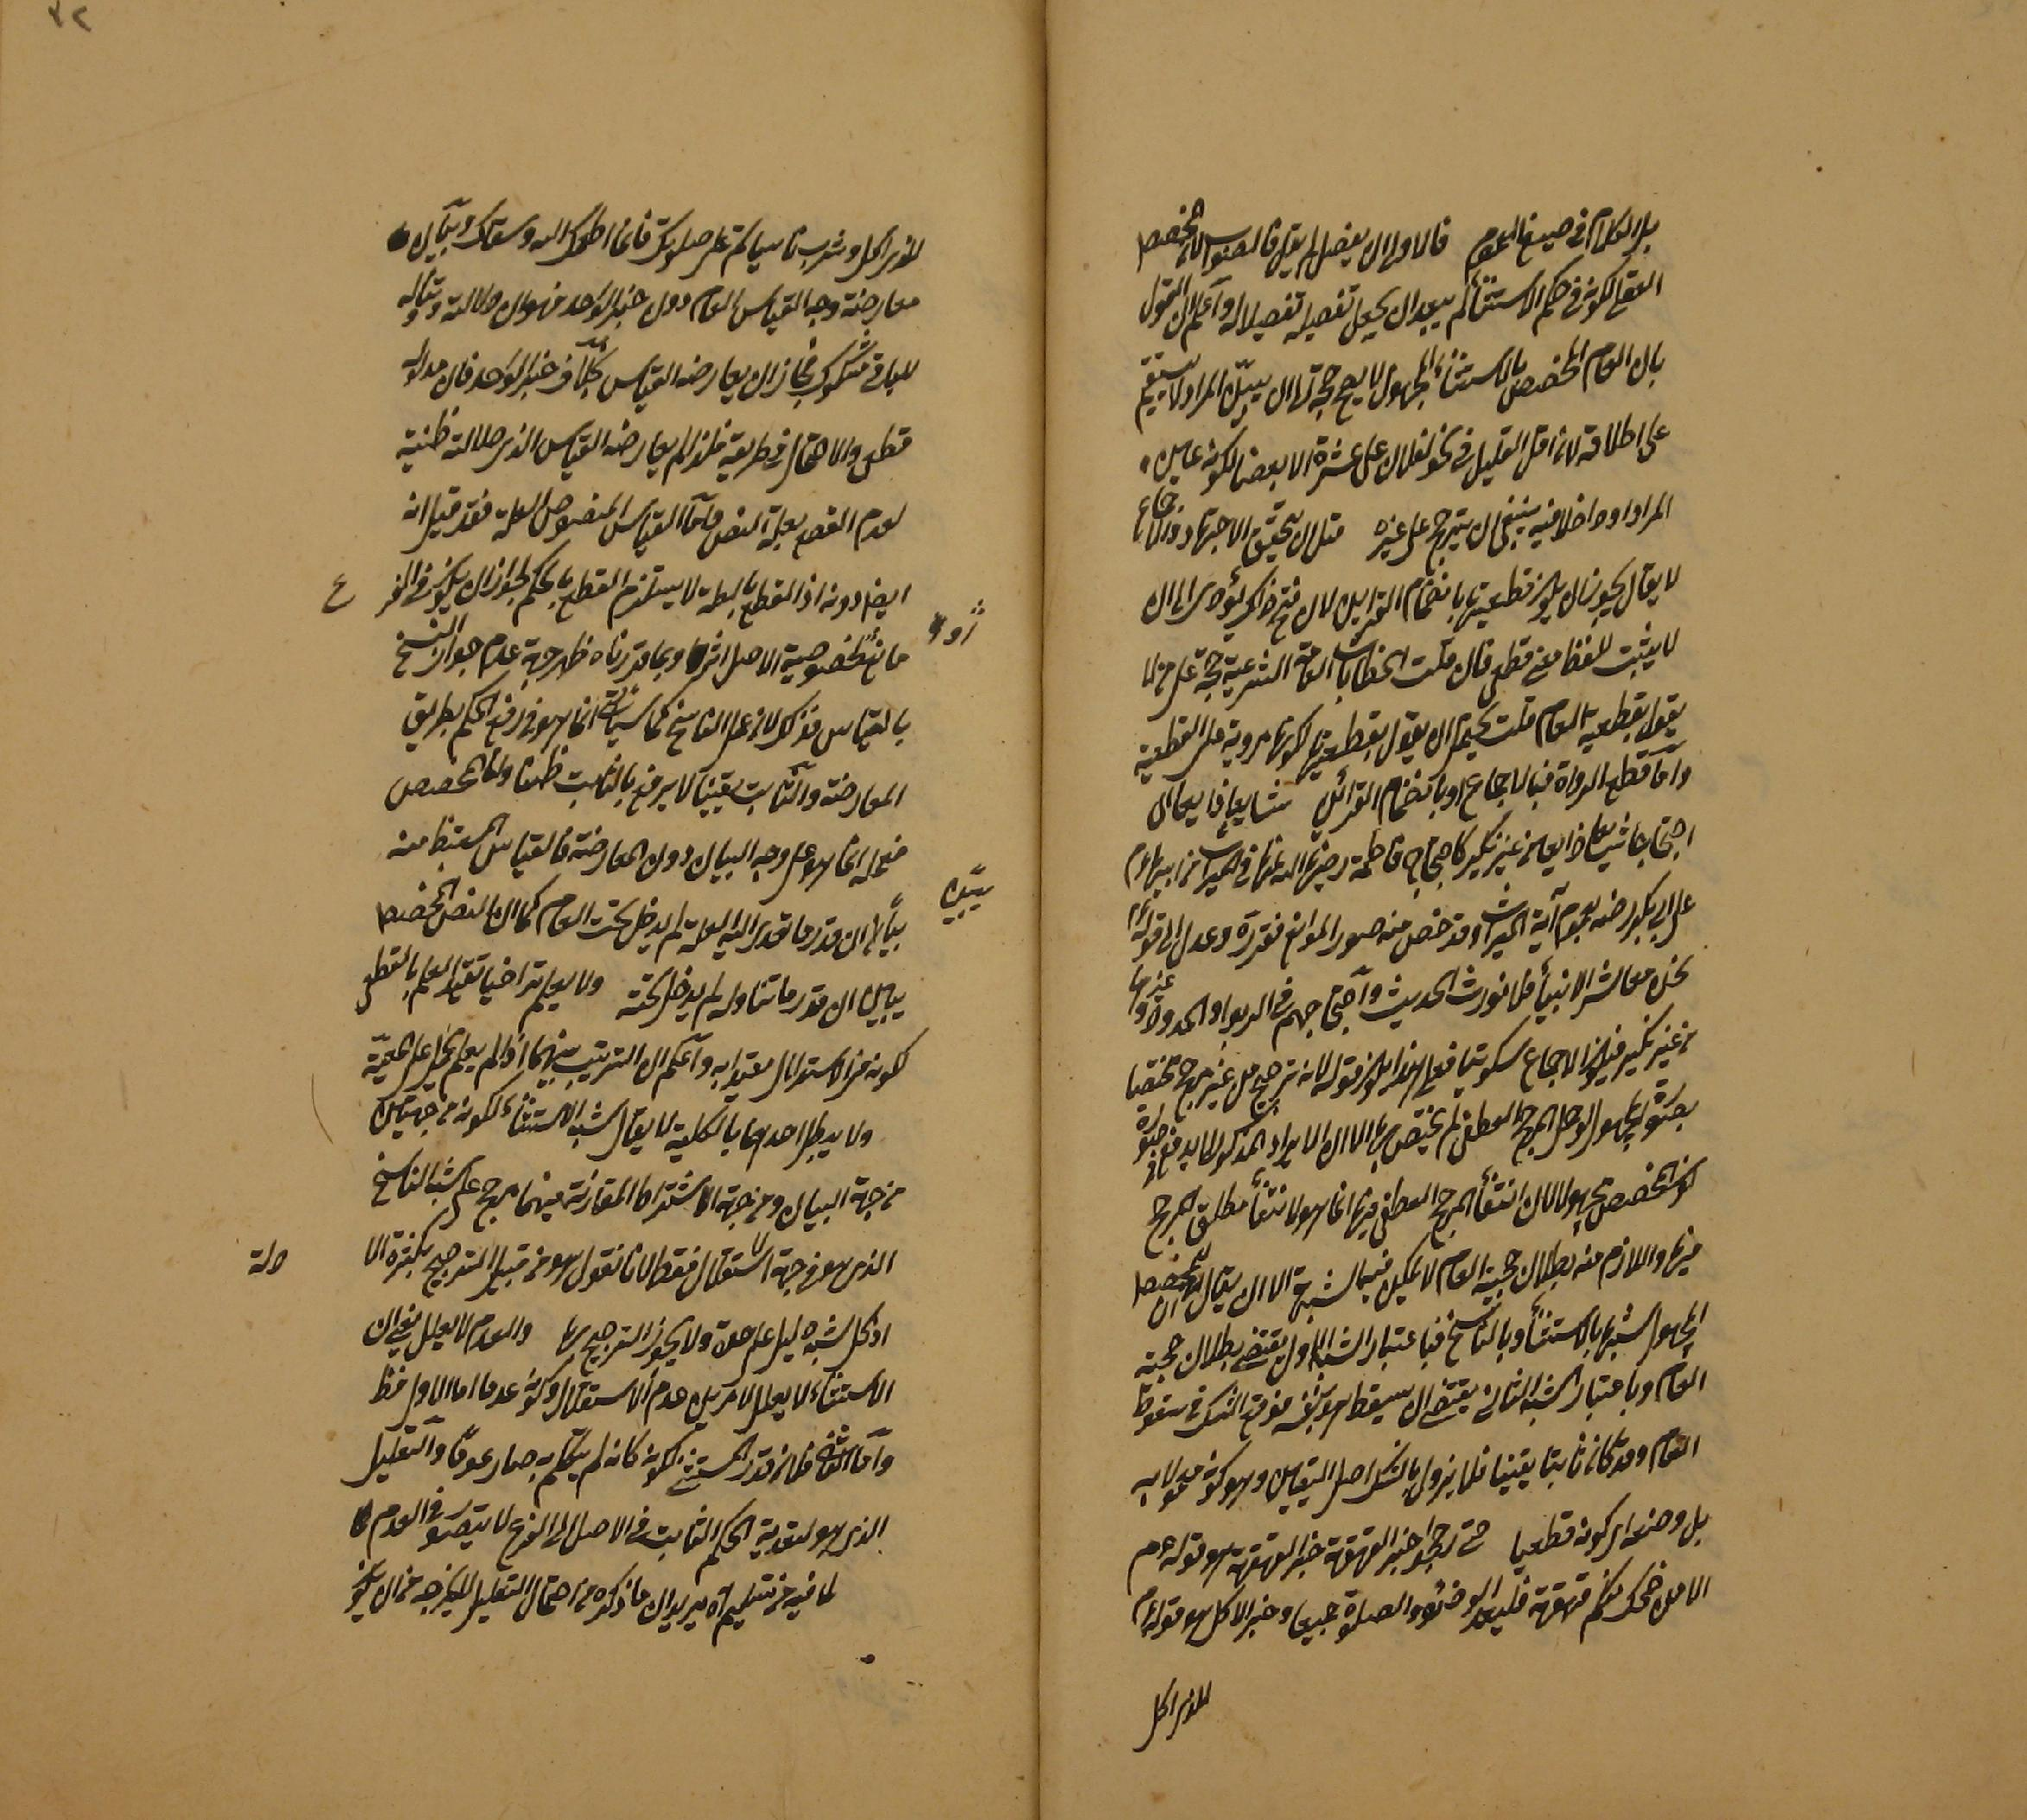 بل الكلام في صيغ العموم فالاولى ان يفصل لم يقل فالصواب لان المخصص
العقلي لكونه في حكم الاستثناء لم يبعد ان يجعل تفصيله تفصيلا له واعلم ان القول
بان العام المخصص بالاستثناء المجهول لا يصح حجة الى ان يبيّن المراد لا يستقيم
على اطلاقه لان اقل القليل في نحو لفلان على عشرة الا بعضا لكونه عين
المراد او داخلا فيه ينبغي ان يترجح على غيره مثل ان تحقيق الاجتهاد والاجماع
لا يقال يجوز ان يكون قطعيتها بانضمام القرائن لان فتح ذاك يؤدى الى ان
لا يثبت للفظ معنى قطعي فان قلت الخطابات العامة الشرعية حجة على من لا
يقول بقطعية العام قلت يحتمل ان يقول بقطعيتها لكونها مروية على القطعية
واما قطع الرواة فبالاجماع او بانضمام القرائن شايعا ذايعا اى
احتجاجا شايعا ذايعا من غير نكير كاحتجاج فاطمة رضى الله عنها في الميراث من ابيها م
على ابى بكر رضه بعموم آية الميراث وقد خص منه صور الموانع فقرره وعدل الى قوله م
نحن معاشر الانبياء فلا نورث الحديث واحتجاجهم في الربوا والحدود وغيرها
من غير نكير فيكون الاجماع سكوتيا فعلى هذا يكون قوله لانه ترجيح من غير مرجح مختصا
بصورة المجهول الوصل المرجح العطفي لم يختص بها الا ان الايراد المذكور لا يدفع في صورة
كون المخصص مجهولا لان انتفاء المرجح العطفي فيها انما هو لانتفاء مطلق المرجح
فيها واللازم منه بطلان حجية العام لا تمكين فيها الشبهة الا ان يقال ان للمخصص
المجهول شبها بالاستثناء وبالناسخ فباعتبار الشبه الاول يقتضى بطلان حجية
العام وباعتبار الشبه الثانى يقتضى ان يسقط هو بنفسه فوقع الشك في سقوط
العام وقد كان ثابتا يقينا فلا يزول بالشك اصل القياس وهو كونه معمولا به
بل وصفه اى كونه قطعيا حتى رجحوا خبر القهقهة خبر القهقهة هو قوله عم
الا من ضحك منكم قهقهة فليعد الوضوء والصلوة جميعا وخبر الاكل هو قوله م
للذى اكل
للذى اكل وشرب ناسيا تم على صومك فانما اطعمك الله وسقاك وبيان
معارضة وجه القياس العام دون خبر الواحد هو ان دلالته وتناوله
للباقى مشكوك فجاز ان يعارضه القياس بخلاف خبر الواحد فان مدلوله
قطعى والاحتمال في طريقه فلذا لم يعارضه القياس الذى دلالته ظنية
لعدم القطع بعلة النص واما القياس المنصوص العلة فقد قيل انه
ايضا دونه اذ القطع بالعلة لا يستلزم القطع بالحكم لجواز ان يكون في الفرع
مانع لخصوصية الاصل اثر وبما قررناه ظهر جهة عدم جواز النسخ
بالقياس فذكر لان عمل الناسخ كما سيأتى انما هو في رفع الحكم بطريق
المعارضة والثابت يقينا لا يرفع بالثابت ظنا واما المخصص
فعمله انما هو على وجه البيان دون المعارضة فالقياس المستنبط منه
يبين ان قدر ما تعدى اليه العلة لم يدخل تحت العام كما ان النص المخصص
يبين ان قدر ما تناوله لم يدخل تحته ولا يعلم تراخيا تقييد العلم بالقطعى
كونه من الاستدلال معتدا به واعلم ان الترتيب بينهما اذا لم يعلم يحمل على المعية
ولا يبطل احدهما بالكلية لا يقال شبه الاستثناء لكونه من جهتين
من جهة البيان ومن جهة الاشتراط المقارنة فيهما مرجح على شبه الناسخ
الذى هو من جهة الاستقلال فقط لانا نقول هو من قبيل الترجيح بكثرة الا
دلة
اذ كل شبه دليل على حدة ولا يجوز الترجيح بها والعدم لا يعلل يعنى ان
الاستثناء لا يعلل لامرين عدم الاستقلال وكونه عدما اما الاول فظ
واما الثانى فلان قدر المستثنى لكونه كانه لم يتكلم به صار عدما والتعليل
الذى هو لتعدية الحكم الثابت في الاصل الى الفرع لا يتصور في العدم
لما فيه من تسليم آه يريد ان ما ذكره من احتمال التعليل لا يخرجه من ان يكون